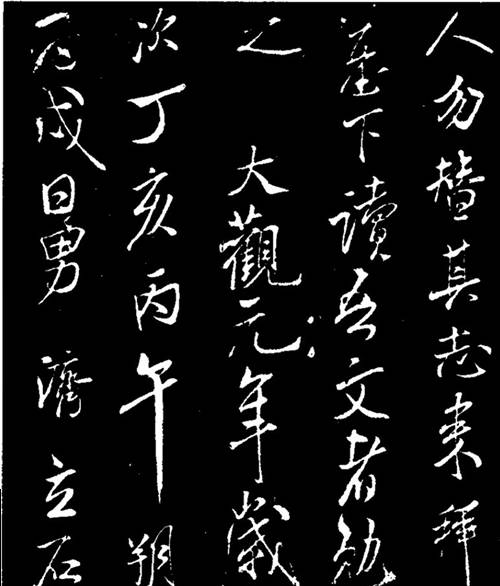 人勿替其志来拜
墓下讀吾文者勉
之 大觀元年歲
次丁亥丙午朔
戌日男 濟立石